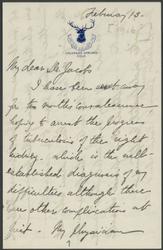 February 13.
My dear Mr. Jacobs
I have been away
for two months on a leave
hoping to arrest the progress
of tuberculosis of the right
kidney. which is the well-
established diagnosis of my
difficulties although there
are other complications at
first. My physician